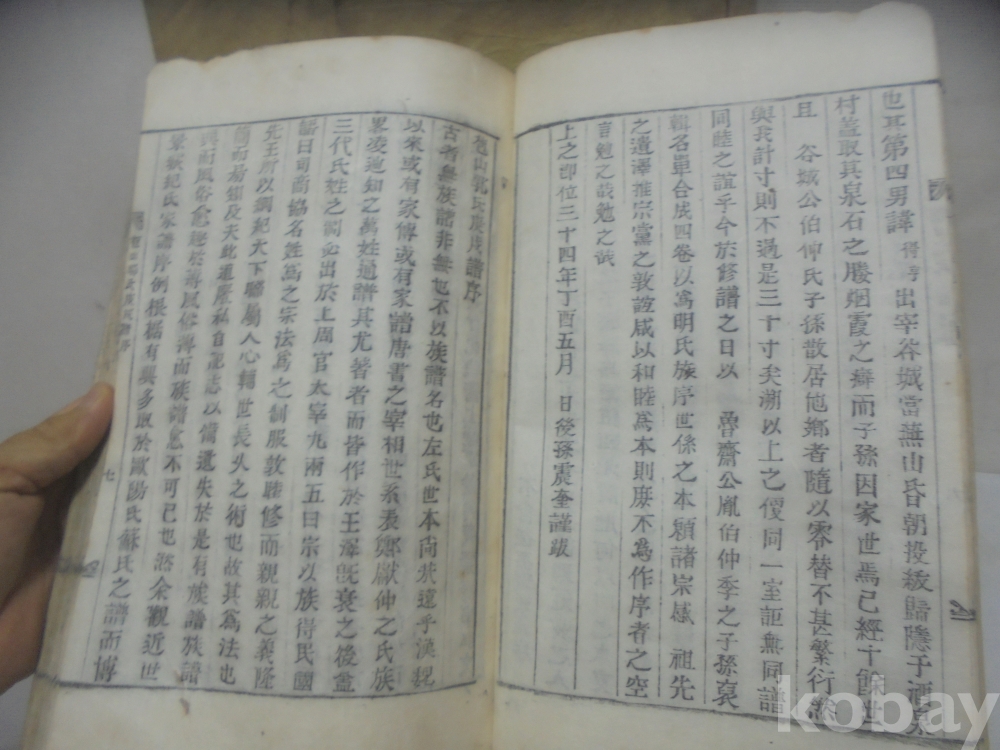 也耳第四男諱得亨出宰谷城當蕪山昏朝投紱歸隱于
村盖取其泉石之勝烟霞之癖而子孫因家世焉已經十餘世
且谷城公伯仲氏子孫散居他鄕者隨以零替不甚繁衍然
與我計寸則不過是三十寸矣溯以上之便同一室詎無同譜
同睦之誼乎今於修譜之日以魯齋公胤伯仲季之子孫裒
輯名單合成四卷以爲明氏族序世係之本願諸宗感祖先
之遺澤推宗黨之敦誼咸以和睦爲本則庶不為作序者之空
言勉之哉勉之哉
上之卽位三十四年丁酉五月日後孫震奎謹跋
山氏庚戌譜序
古者無族譜非無也不以族譜名也左氏世本尙狀遠乎漢魏
以來或有家傳或有家譜唐書之宰相世系表鄭獻仲之氏族
畧凌廸知之萬姓通譜其尤著者而皆作於王澤旣衰之後盖
三代氏姓之別必出於上周官太宰九兩五曰宗以族得民國
語曰司商協名姓爲之宗法爲之制服敦睦修而親親之義隆
先王所以綱紀天下聯屬人心輔世長久之術也故其爲法也
簡而易知及夫此道廢私自記志以備遺失於是有族譜族譜
興而風俗愈薄風俗薄而族譜愈不可已也然余觀近世
氏家譜序例根據有興多取於歐陽氏蘇氏之譜而博
七
kobay